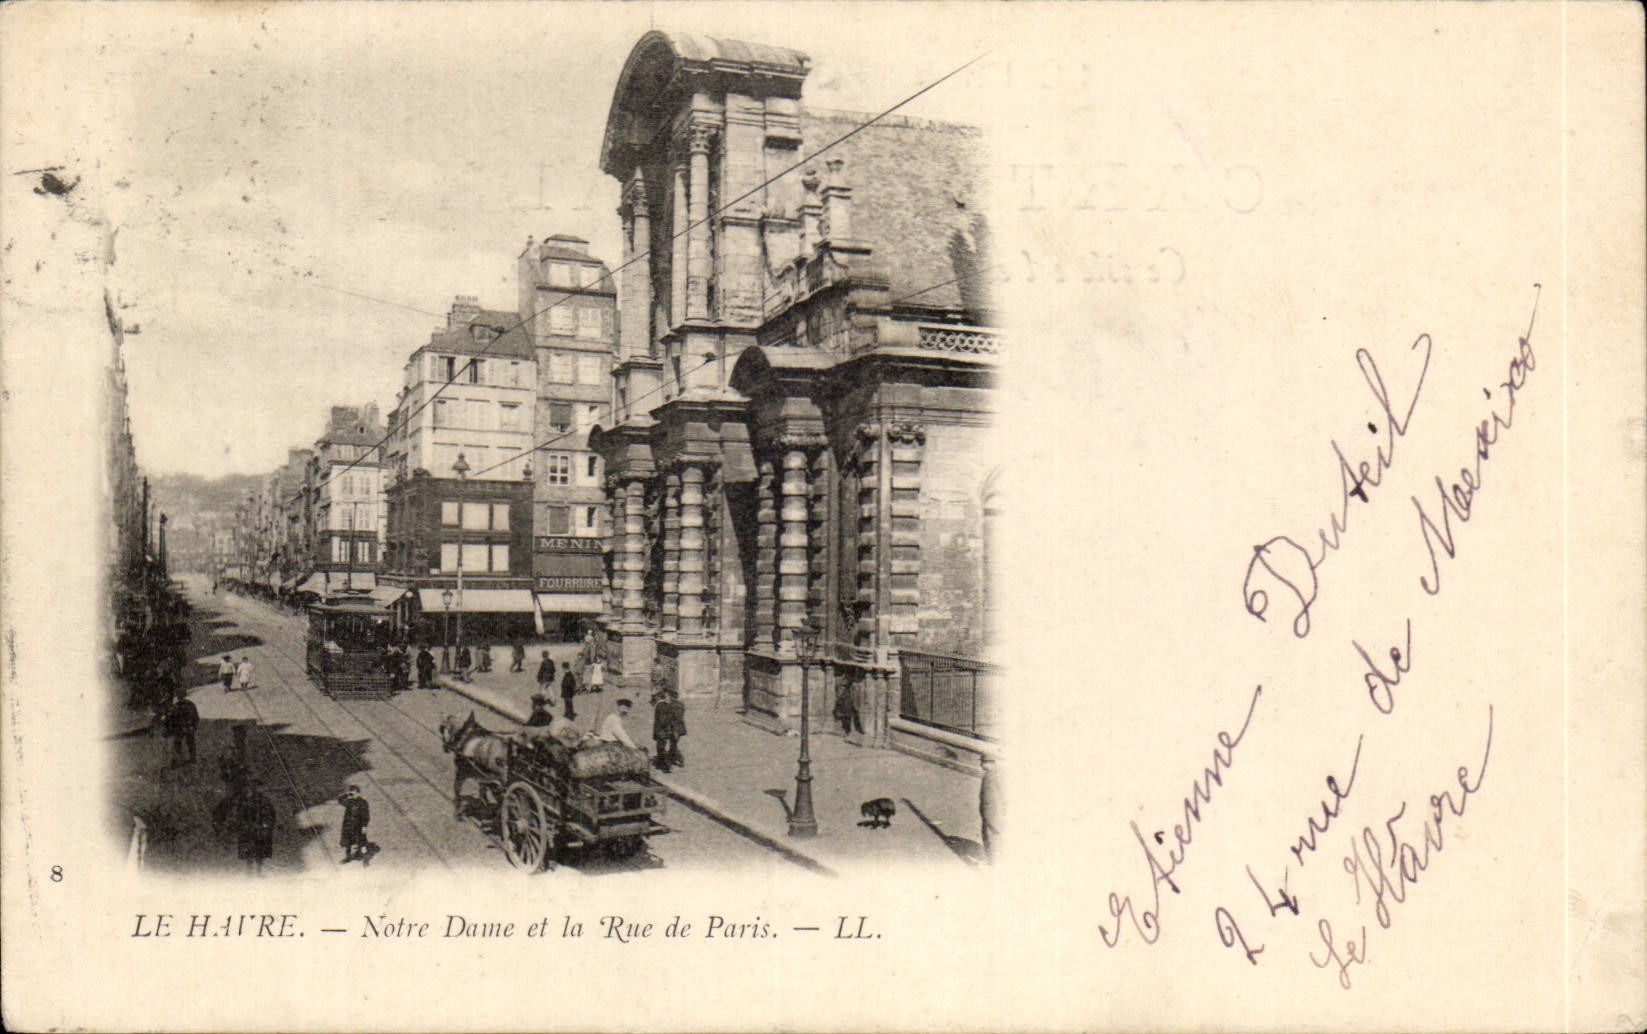 MENIN
FOURRURE
8
LE HAVRE. — Notre Dame et la Rue de Paris. — LL.
Etienne Duteil
24 rue de Mexico
Le Hâvre